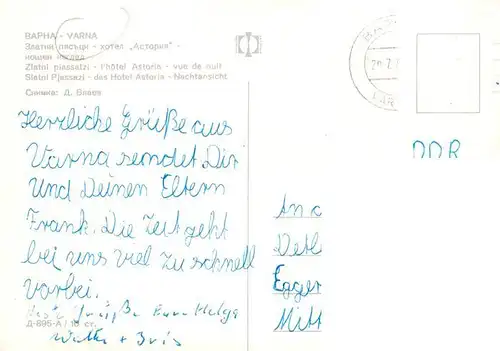 ВАРНА - VARNA
Златни пясъци - хотел „Астория" -
нощен изглед
Zlatni piassatzi - l'hôtel Astoria - vue de nuit
Slatni Pjassazi - das Hotel Astoria - Nachtansicht
Снимка: Д. Власев
Herzliche Grüße aus
Varna sendet Dir
und Deinen Eltern
Frank. Die Zeit geht
bei uns viel zu schnell
vorbei.
Grüße Helga
+
Д-895-А / 10 ст.
DDR
An
Detle
Egger
Mitt